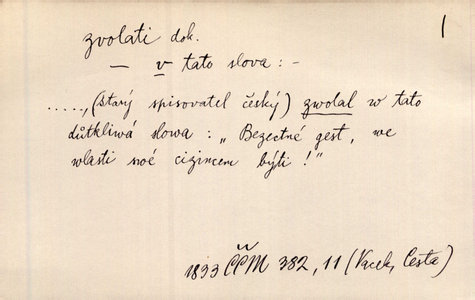 zvolati dok. 1
— v tato slova : –
....., (starý spisovatel český) zwolal w tato
důtkliwá slowa : „Bezectné gest, we
wlasti swé cizincem býti !"
1833 ČČM 382, 11 (Vacek, Cesta)